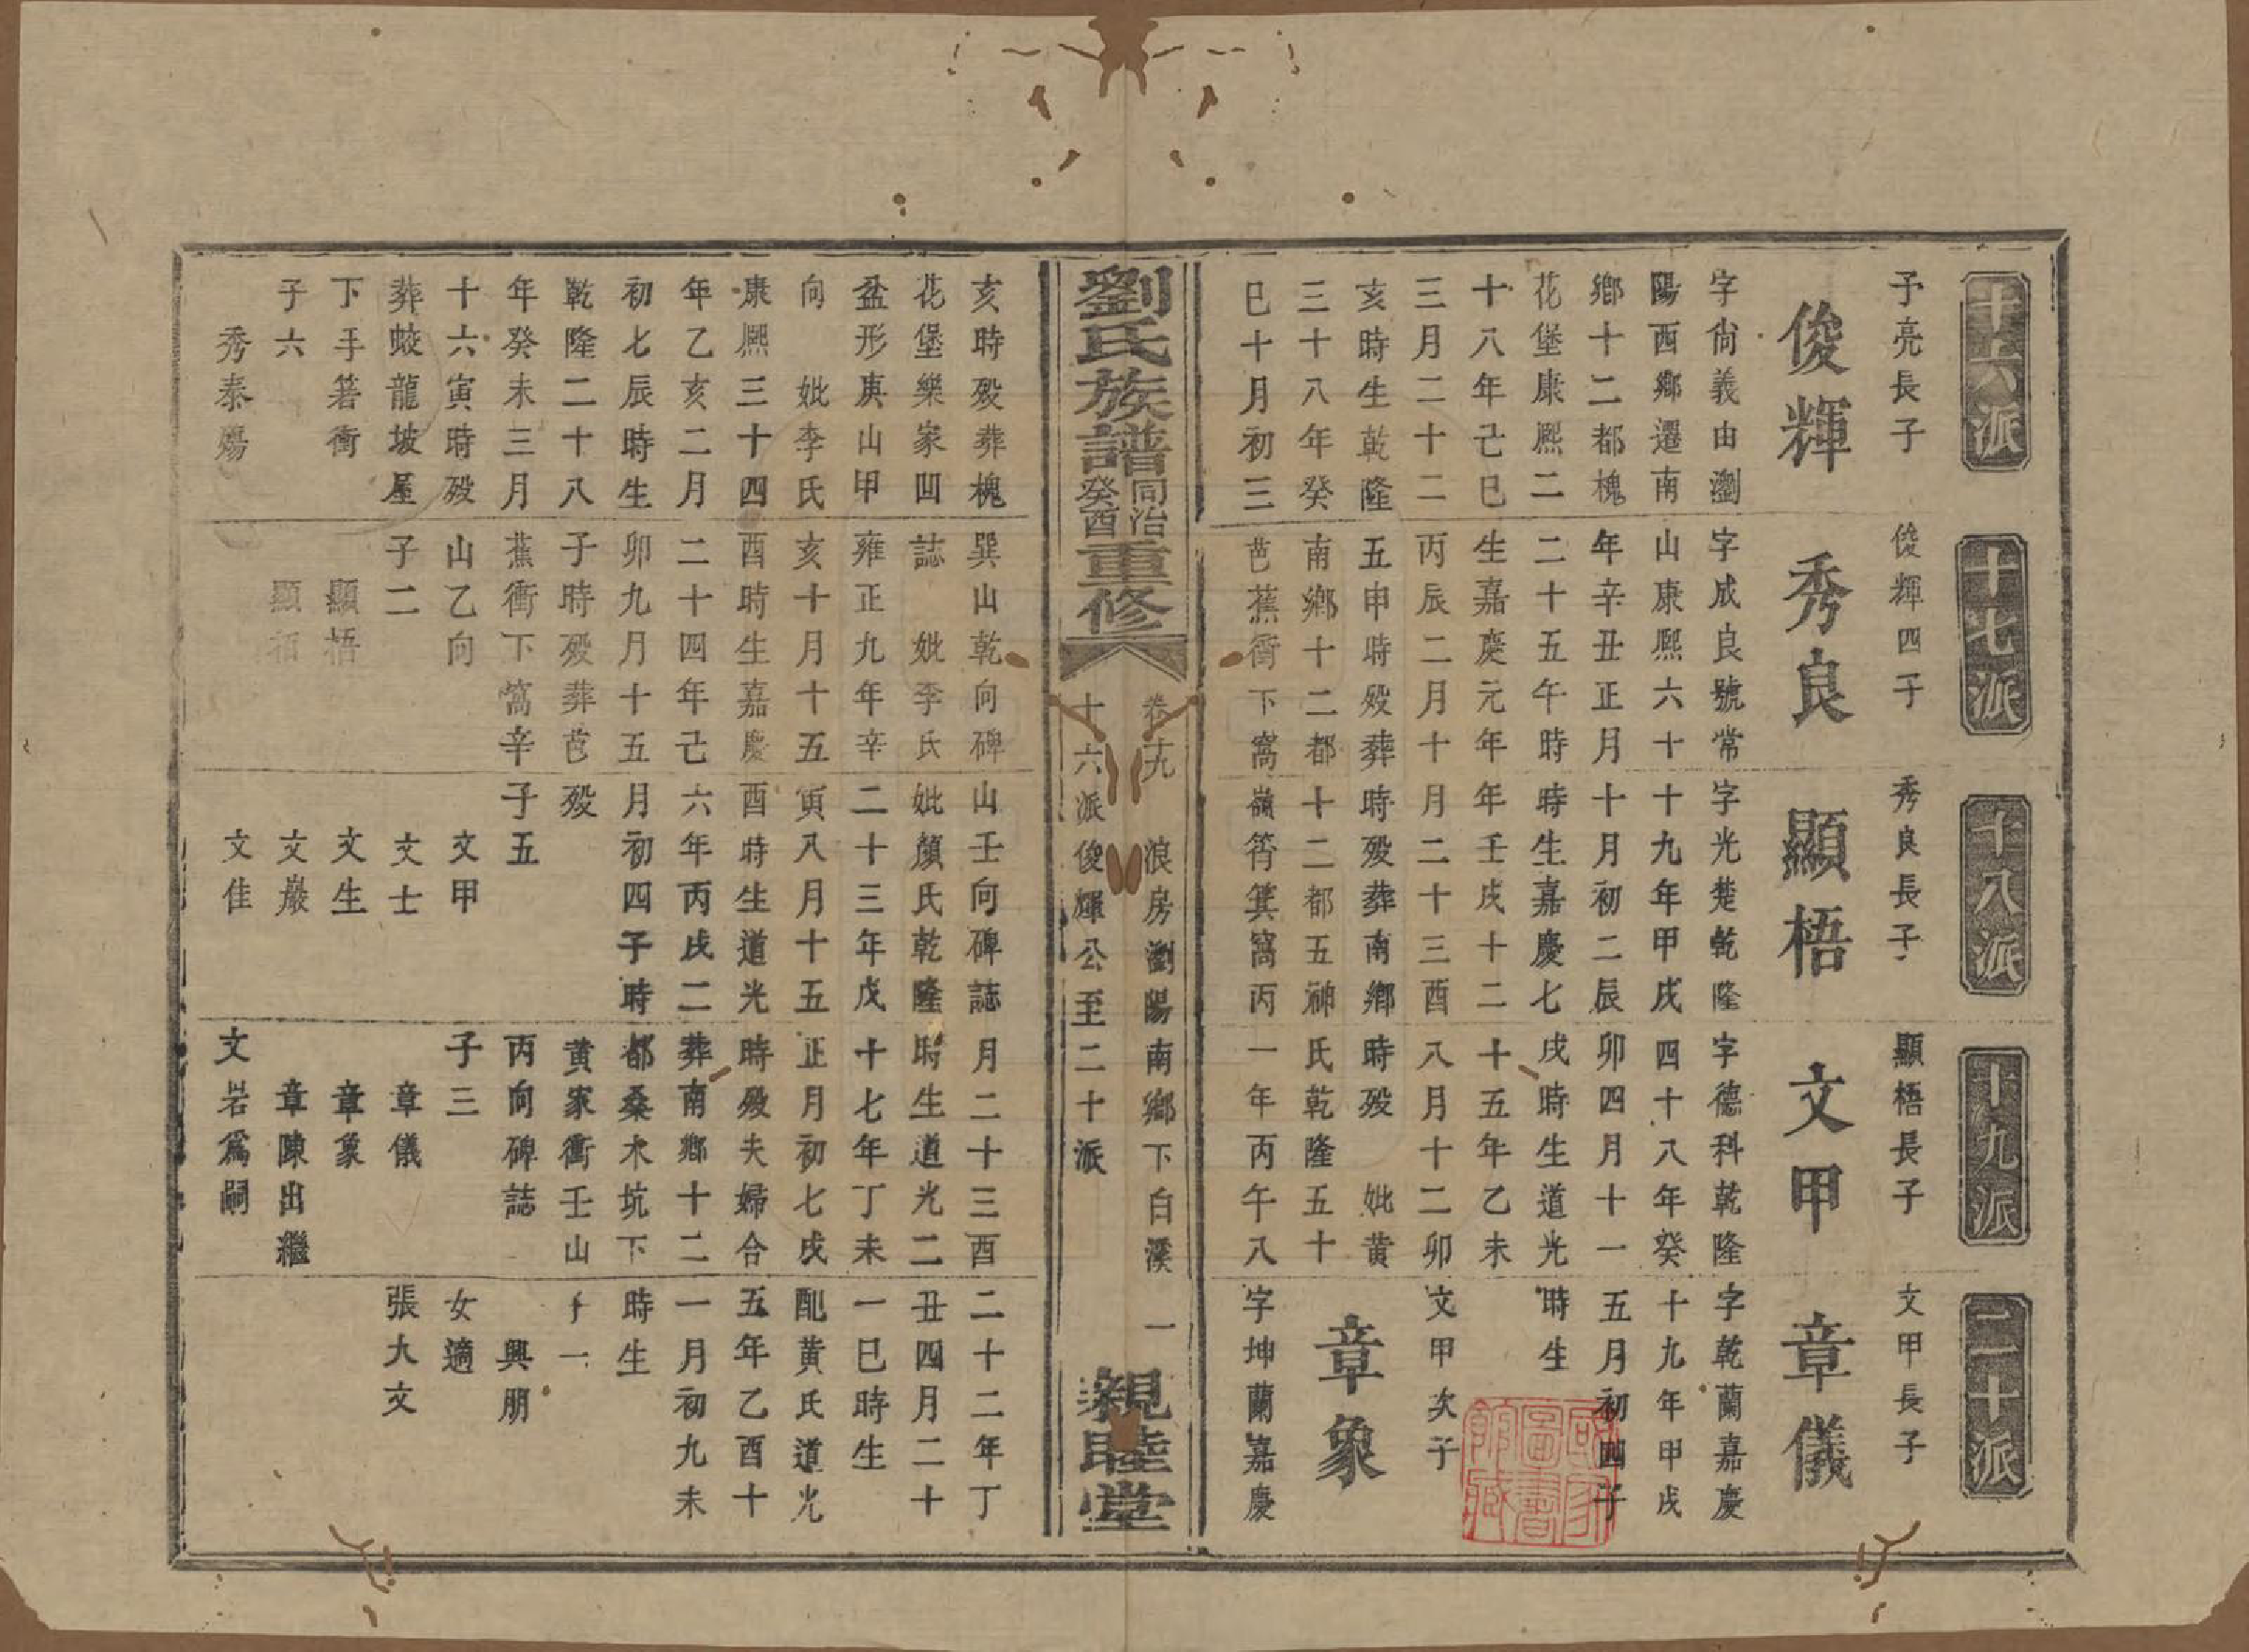 十六派
予亮長子
俊輝
字尚義由瀏
陽西鄉遷南
鄉十二都槐
花堡康熙二
十八年己巳
三月二十二
亥時生乾隆
三十八年癸
巳十月初三
亥時歿葬槐
花堡樂家凹
盆形庚山甲
向 妣李氏
康熙三十四
年乙亥二月
初七辰時生
乾隆二十八
年癸未三月
十六寅時歿
葬蛟龍坡屋
下手箬衝
子六
秀泰殤
十七派
俊輝四子
秀良
字成良號常
山康熙六十
年辛丑正月
二十五午時
生嘉慶元年
丙辰二月十
五申時歿葬
南鄉十二都
芭蕉衝下窩
巽山乾向碑
誌 妣李氏
雍正九年辛
亥十月十五
酉時生嘉慶
二十四年己
卯九月十五
子時歿葬芭
蕉衝下窩辛
山乙向
子二
顯梧
顯栢
十八派
秀良長子
顯梧
字光楚乾隆
十九年甲戌
十月初二辰
時生嘉慶七
年壬戌十二
月二十三酉
時歿葬南鄉
十二都五神
嶺筲箕窩丙
山壬向碑誌
妣顏氏乾隆
二十三年戊
寅八月十五
酉時生道光
六年丙戌二
月初四子時
歿
子五
文甲
文士
文生
文巖
文佳
十九派
顯梧長子
文甲
字德科乾隆
四十八年癸
卯四月十一
戌時生道光
十五年乙未
八月十二卯
時歿 妣黃
氏乾隆五十
一年丙午八
月二十三酉
時生道光二
十七年丁未
正月初七戌
時歿夫婦合
葬南鄉十二
都桑木坑下
黃家衝壬山
丙向碑誌
子三
章儀
章象
章陳出繼
文岩爲嗣
二十派
文甲長子
章儀
字乾蘭嘉慶
十九年甲戌
五月初四子
時生
文甲次子
章象
字坤蘭嘉慶
二十二年丁
丑四月二十
一巳時生
配黃氏道光
五年乙酉十
一月初九未
時生
子一
興朋
女適
張大文
劉氏族譜 同治癸酉 重修
卷十九 浪房瀏陽南鄉下白溪 一
十六派俊輝公至二十派
親睦堂
國家圖書館藏